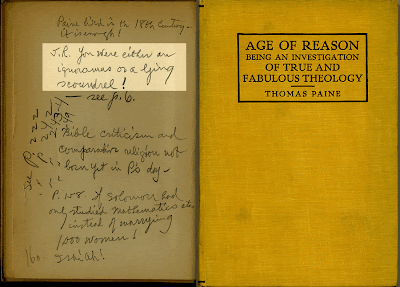 Paine lived in the 18th Century –
J.R. You were either an
ignoramus or a lying
scoundrel!
— see p. 6.
Bible criticism and
comparative religion not
born yet in P's day –
see P. 222
P. 158. If Solomon had
only studied mathematics etc.
instead of marrying
1,000 women!
160 –
AGE OF REASON
BEING AN INVESTIGATION
OF TRUE AND
FABULOUS THEOLOGY
THOMAS PAINE